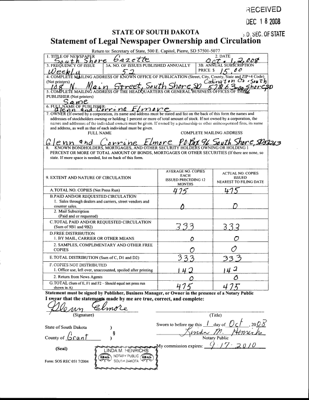 RECEIVED
DEC 18 2008
S.D. SEC. OF STATE
STATE OF SOUTH DAKOTA
Statement of Legal Newspaper Ownership and Circulation
Return to: Secretary of State, 500 E. Capitol, Pierre, SD 57501-5077
1. TITLE OF NEWSPAPER
South Shore Gazette
2. DATE
Oct 1, 2008
3. FREQUENCY OF ISSUE
Weekly
3A. NO. OF ISSUES PUBLISHED ANNUALLY
52
3B. ANNUAL SUBSCRIPTION PRICE $ 15 00
4. COMPLETE MAILING ADDRESS OF KNOWN OFFICE OF PUBLICATION (Street, City, County, State and ZIP+4 Code) (Not printers)
108 N Main Street, South Shore SD 57263
5. COMPLETE MAILING ADDRESS OF THE HEADQUARTERS OF GENERAL BUSINESS OFFICES OF THE PUBLISHER (Not printers)
Same
6. FULL NAME OF PUBLISHER:
Glenn and Corrine Elmore
7. OWNER (If owned by a corporation, its name and address must be stated and
addresses of stockholders owning or holding 1 percent or more of total amount of stock. If not owned by a corporation, the
names and addresses of the individual owners must be given. If owned by a partnership or other unincorporated firm, its name
and address, as well as that of each individual must be given.
FULL NAME COMPLETE MAILING ADDRESS
Glenn and Corrine Elmore PO Box 96 South Shore, SD 57263
8. KNOWN BONDHOLDERS, MORTGAGES, AND OTHER SECURITY HOLDERS OWNING OR HOLDING 1
PERCENT OR MORE OF TOTAL AMOUNT OF BONDS, MORTGAGES OR OTHER SECURITIES (If there are none, so
state. If more space is needed, list on back of this form.
9. EXTENT AND NATURE OF CIRCULATION
AVERAGE NO. COPIES EACH ISSUED PRECEDING 12 MONTHS
ACTUAL NO. COPIES ISSUED NEAREST TO FILING DATE
A. TOTAL NO. COPIES (Net Press Run) 475 475
B. PAID AND/OR REQUESTED CIRCULATION
1. Sales through dealers and carriers, street vendors and counter sales. 0 0
2. Mail Subscription
(Paid and or requested)
C. TOTAL PAID AND/OR REQUESTED CIRCULATION
(Sum of 9B1 and 9B2) 333 333
D. FREE DISTRIBUTION
1. BY MAIL, CARRIER OR OTHER MEANS 0 0
2. SAMPLES, COMPLIMENTARY AND OTHER FREE COPIES 0 0
E. TOTAL DISTRIBUTION (Sum of C, D1 and D2) 333 333
F. COPIES NOT DISTRIBUTED
1. Office use, left over, unaccounted, spoiled after printing 142 142
2. Return from News Agents 0 0
G. TOTAL (Sum of E, F1 and F2 - Should equal net press run shown in A) 475 475
Statement must be signed by Publisher, Business Manager, or Owner in the presence of a Notary Public
I swear that the statements made by me are true, correct, and complete:
Glenn Elmore
(Signature) (Title)
State of South Dakota )
§
County of Grant )
Sworn to before me this 1 day of Oct 2008
Linda M. Heinrichs
Notary Public
(Seal)
LINDA M. HEINRICHS
NOTARY PUBLIC
SOUTH DAKOTA
My commission expires: 9-17-2010